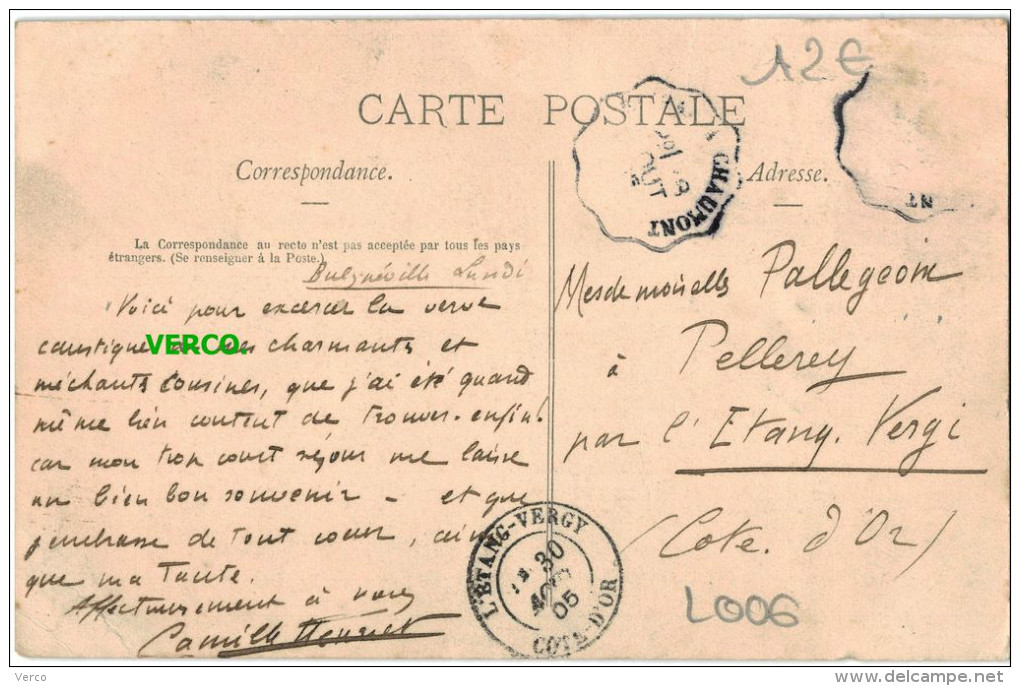 12€
CARTE POSTALE
Correspondance.
Adresse.
CHAUMONT
NT
La Correspondance au recto n'est pas acceptée par tous les pays
étrangers. (Se renseigner à la Poste.)
Bulgnéville Lundi
Voici pour excercer la verve
caustique de mes charmants et
méchants cousines, que j'ai été quand
même bien content de trouver enfin!
car mon trop court séjour me laisse
un bien bon souvenir - et que
j'embrasse de tout coeur, ainsi
que ma Tante.
Affectueusement à vous
Camille
VERCO.
Mesdemoiselles Pallegeoix
à Pellerey
par l'Etang. Vergi
(Cote. d'Or)
L'ETANG-VERGY
30
AOUT
05
COTE-D'OR
L006
Verco
delcampe.net